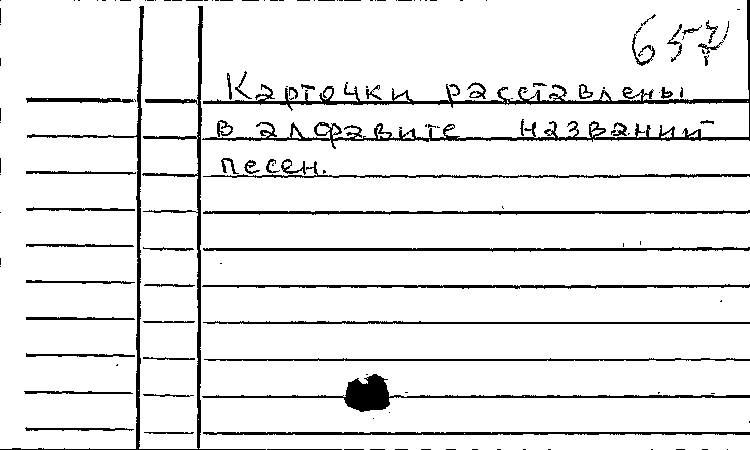 657
Карточки расставлены
в алфавите названий
песен.